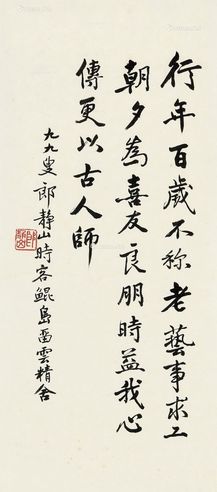 行年百歲不称老藝事求工
朝夕為喜友良朋時益我心
傳更以古人師
九九叟郎靜山時客鯤島雲精舍